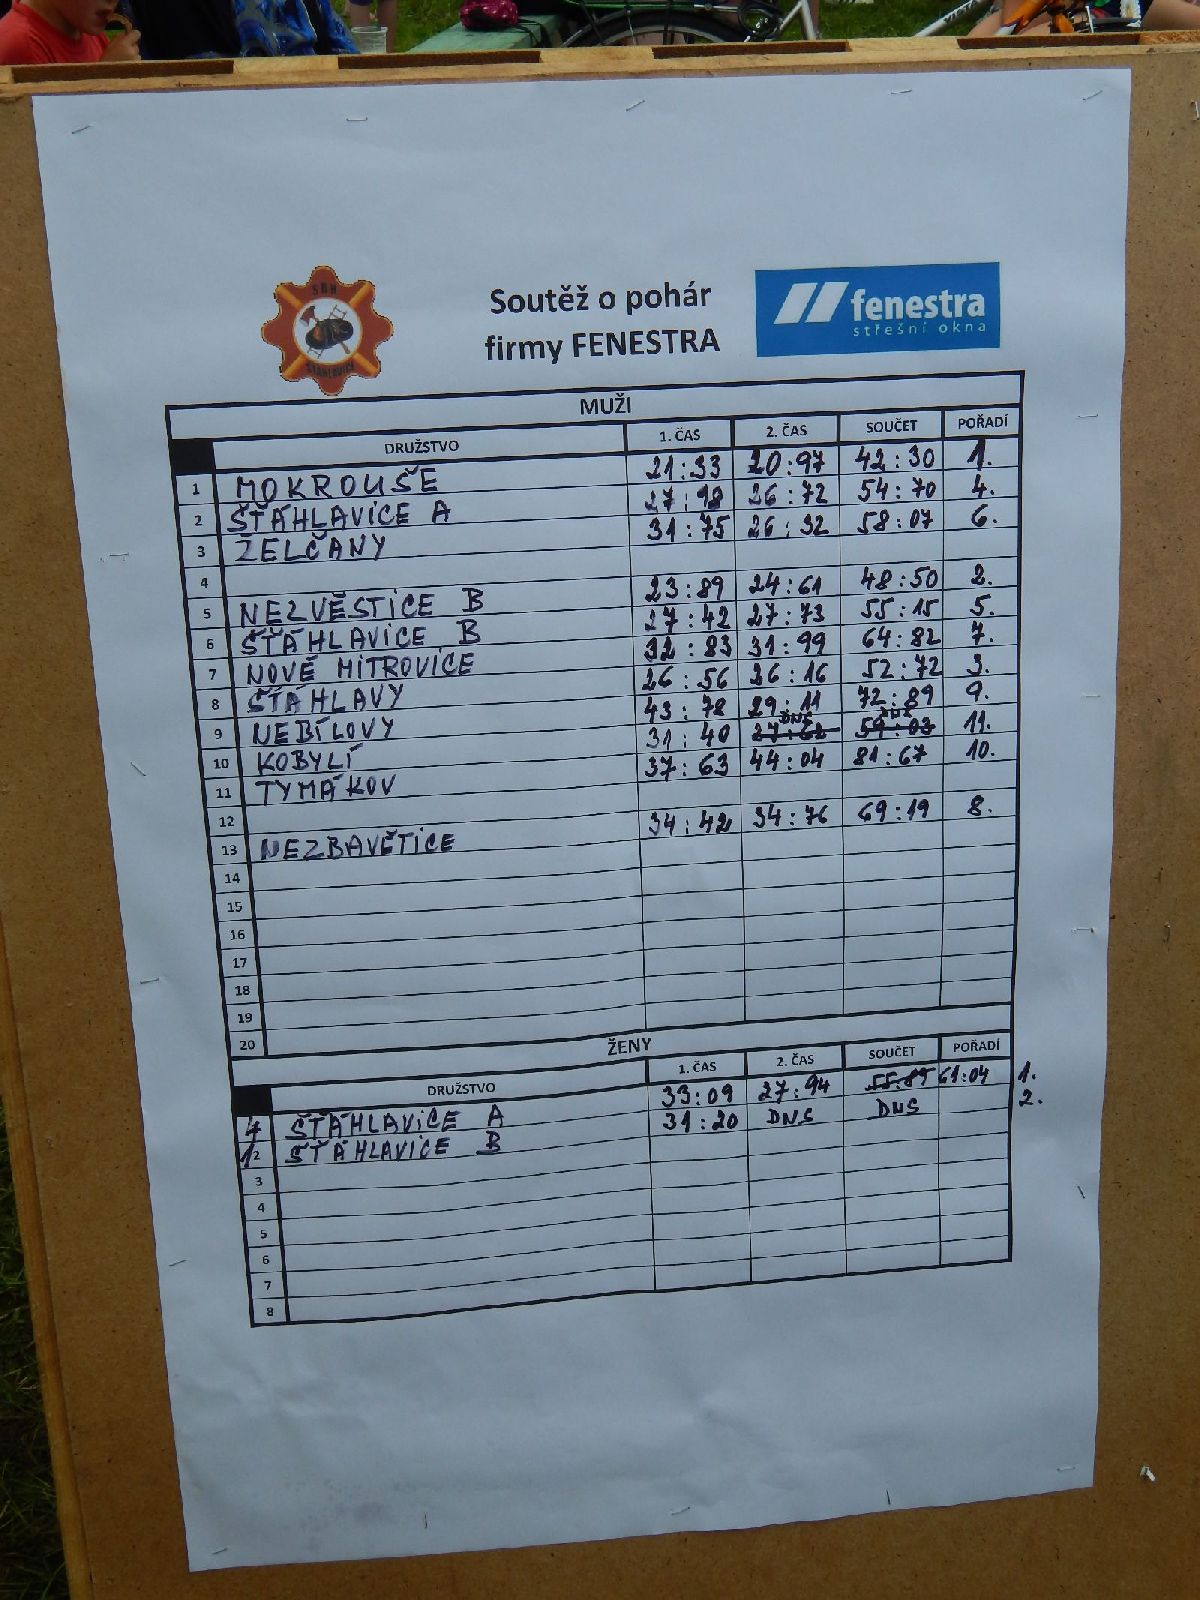 SDH
ŠŤÁHLAVICE
Soutěž o pohár
firmy FENESTRA
fenestra
střešní okna
MUŽI
DRUŽSTVO 1. ČAS 2. ČAS SOUČET POŘADÍ
1 MOKROUŠE 21:33 20:97 42:30 1.
2 ŠŤÁHLAVICE A 27:98 26:72 54:70 4.
3 ŽELČANY 31:75 26:32 58:07 6.
4
5 NEZVĚSTICE B 23:89 24:61 48:50 2.
6 ŠŤÁHLAVICE B 27:42 27:73 55:15 5.
7 NOVÉ MITROVICE 32:83 31:99 64:82 7.
8 ŠŤÁHLAVY 26:56 26:16 52:72 3.
9 NEBÍLOVY 43:78 29:11 72:89 9.
10 KOBYLÍ 31:40 DNS DNS 11.
11 TYMÁKOV 37:63 44:04 81:67 10.
12
13 NEZBAVĚTICE 34:42 34:76 69:19 8.
14
15
16
17
18
19
20
ŽENY
DRUŽSTVO 1. ČAS 2. ČAS SOUČET POŘADÍ
ŠŤÁHLAVICE A 33:09 27:94 55:89 61:04 1.
2 ŠŤÁHLAVICE B 31:20 DNS DNS 2.
3
4
5
6
7
8